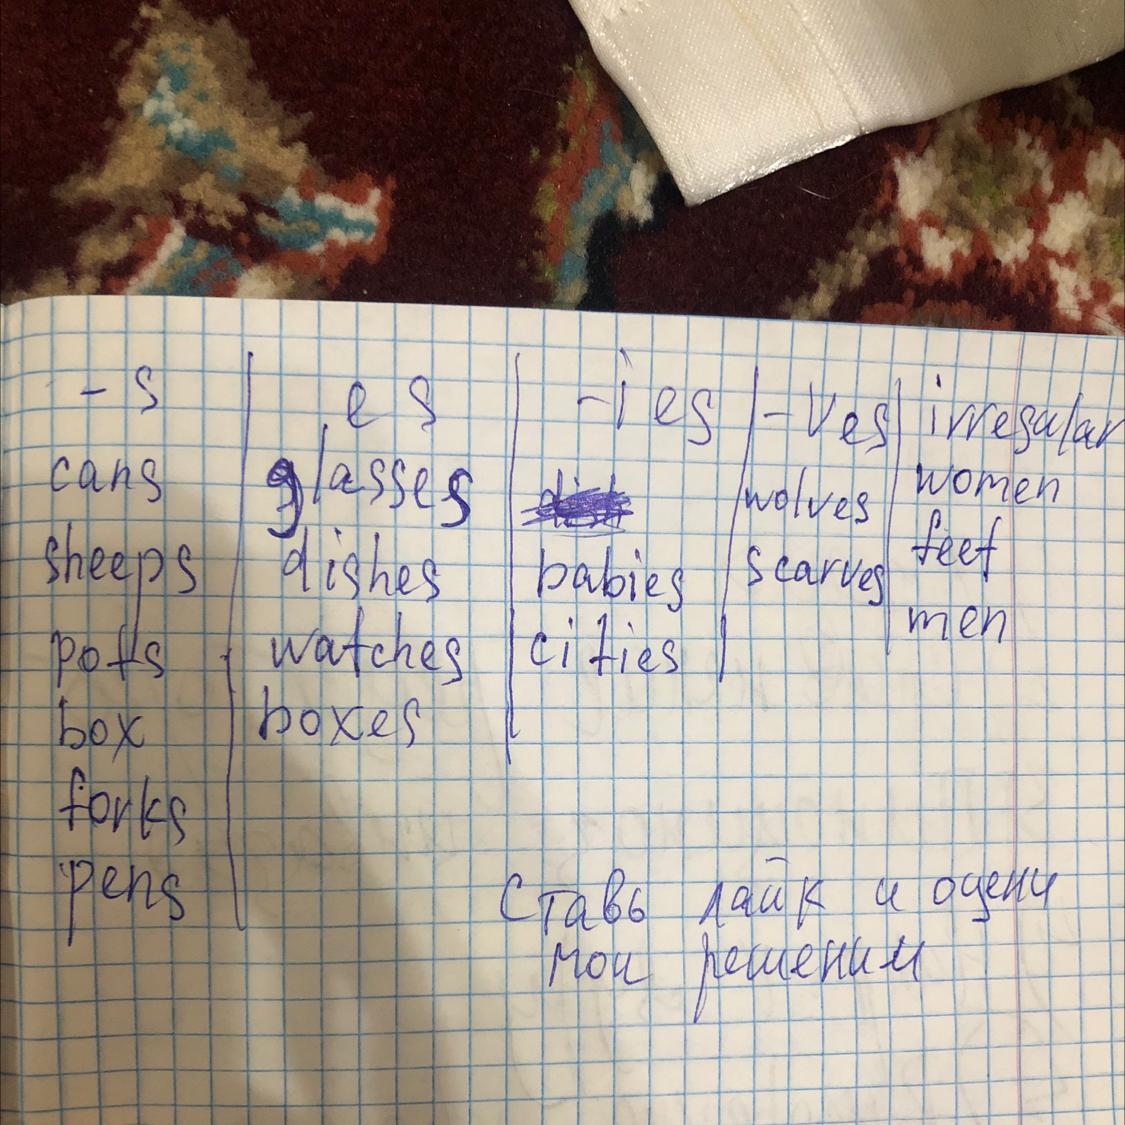 - s
cans
sheeps
pots
box
forks
pens
es
glasses
dishes
watches
boxes
-ies
babies
cities
-ves
wolves
scarves
irregular
women
feet
men
Ставь лайк и оцени
мои решении